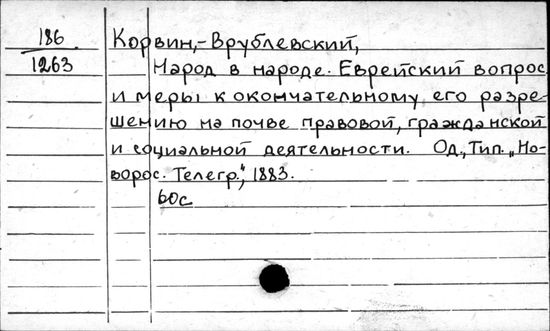 186 Корвин,-Врублевский,
1263 Народ в народе. Еврейский вопрос
и меры к окончательному его разре-
шению на почве правовой, гражданской
и социальной деятельности. Од., Тип. „Но-
ворос. Телегр.“, 1883.
60с